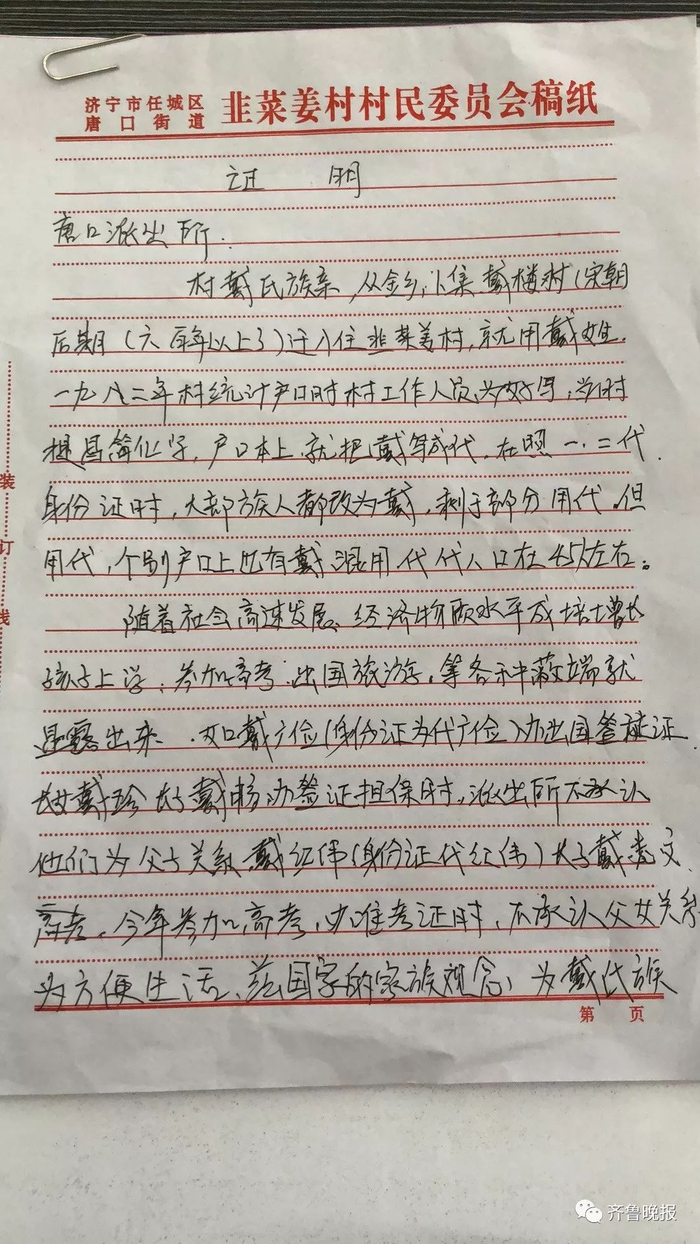 济宁市任城区
唐口街道
韭菜姜村村民委员会稿纸
证 明
唐口派出所:
村戴氏族亲,从金乡,卜集戴楼村(宋朝
后期(六百年以上了)迁入住韭菜姜村,就用戴姓.
一九八二年村统计户口时村工作人员为好写,当时
提昌简化字,户口本上就把戴写成代,在照一.二代.
身份证时,大部族人都改为戴,剩于部分用代.但
用代,个别户口上也有戴混用代代人口在45人左右。
随着社会高速发展、经济物质水平成培增长
孩子上学;参加高考;出国旅游,等各种蔽端就
显露出来.如戴广俭(身份证为代广俭)办出国签证
戴珍长子戴 办签证担保时,派出所不承认
他们为父子关系.戴红伟(身份证代红伟)长子戴 文
高考,今年参加高考,办准考证时,不承认父女关系
为方便生活、 国家的家族观念,为戴氏族
第 页
装
订
线
齐鲁晚报